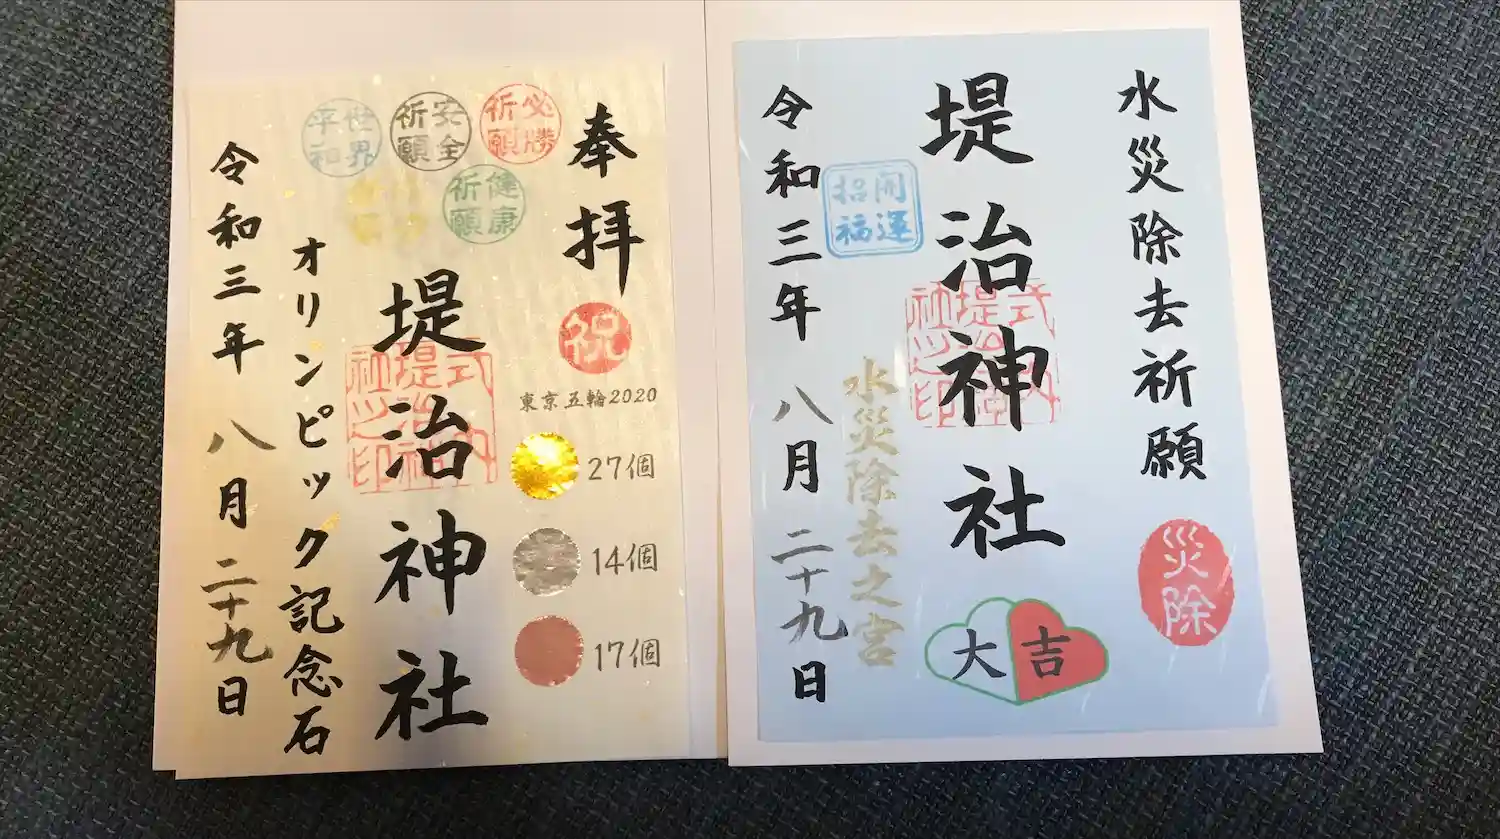 奉拝
祝
東京五輪2020
27個
14個
17個
必勝祈願
安全祈願
世界平和
健康祈願
堤治神社
オリンピック記念石
令和三年 八月二十九日
水災除去祈願
災除
堤治神社
大吉
開運招福
水災除去之宮
令和三年 八月二十九日